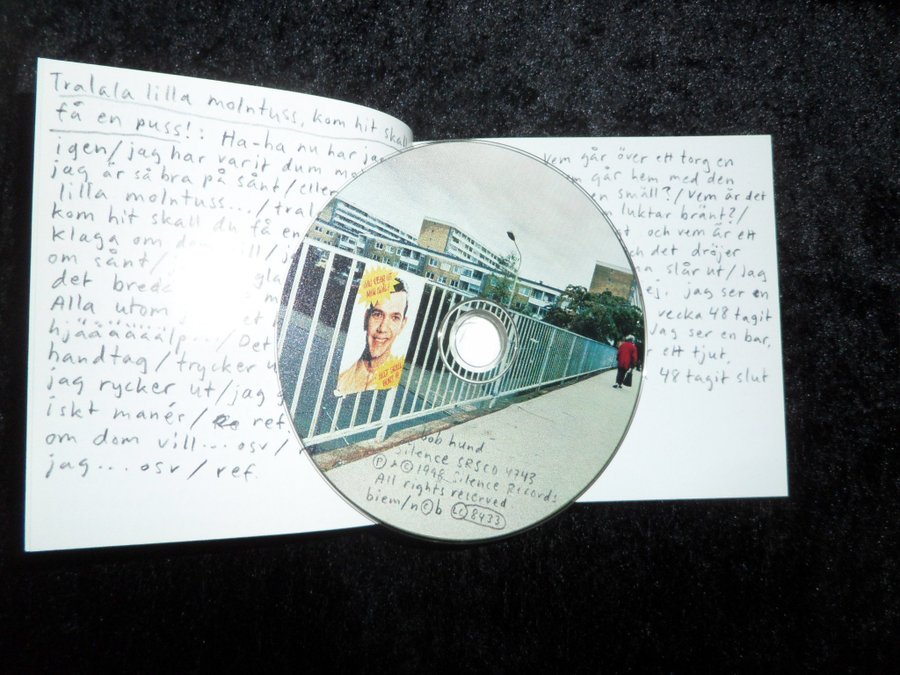 Tralala lilla molntuss, kom hit skall
få en puss!: Ha-ha nu har jag
igen/jag har varit dum mo
jag är så bra på sånt/eller
lilla molntuss.../tral
kom hit skall du få en
klaga om dom vill/j
om sånt/ gla
det brede m
Alla utom et
hjäääääälp../Det
handtag/trycker u
jag rycker ut/jag
iskt manér/ ref
om dom vill... osv/
jag... osv/ref.
Vem går över ett torg en
m går hem med den
n smäll?/Vem är det
m luktar bränt?/
t och vem är ett
ch det dröjer
na slår ut/jag
ej. jag ser en
vecka 48 tagit
Jag ser en bar,
r ett tjut.
48 tagit slut
bob hund
Silence SRSCD 4743
Ⓟ & © 1998 Silence Records
All rights reserved
biem/n©b LC 8433